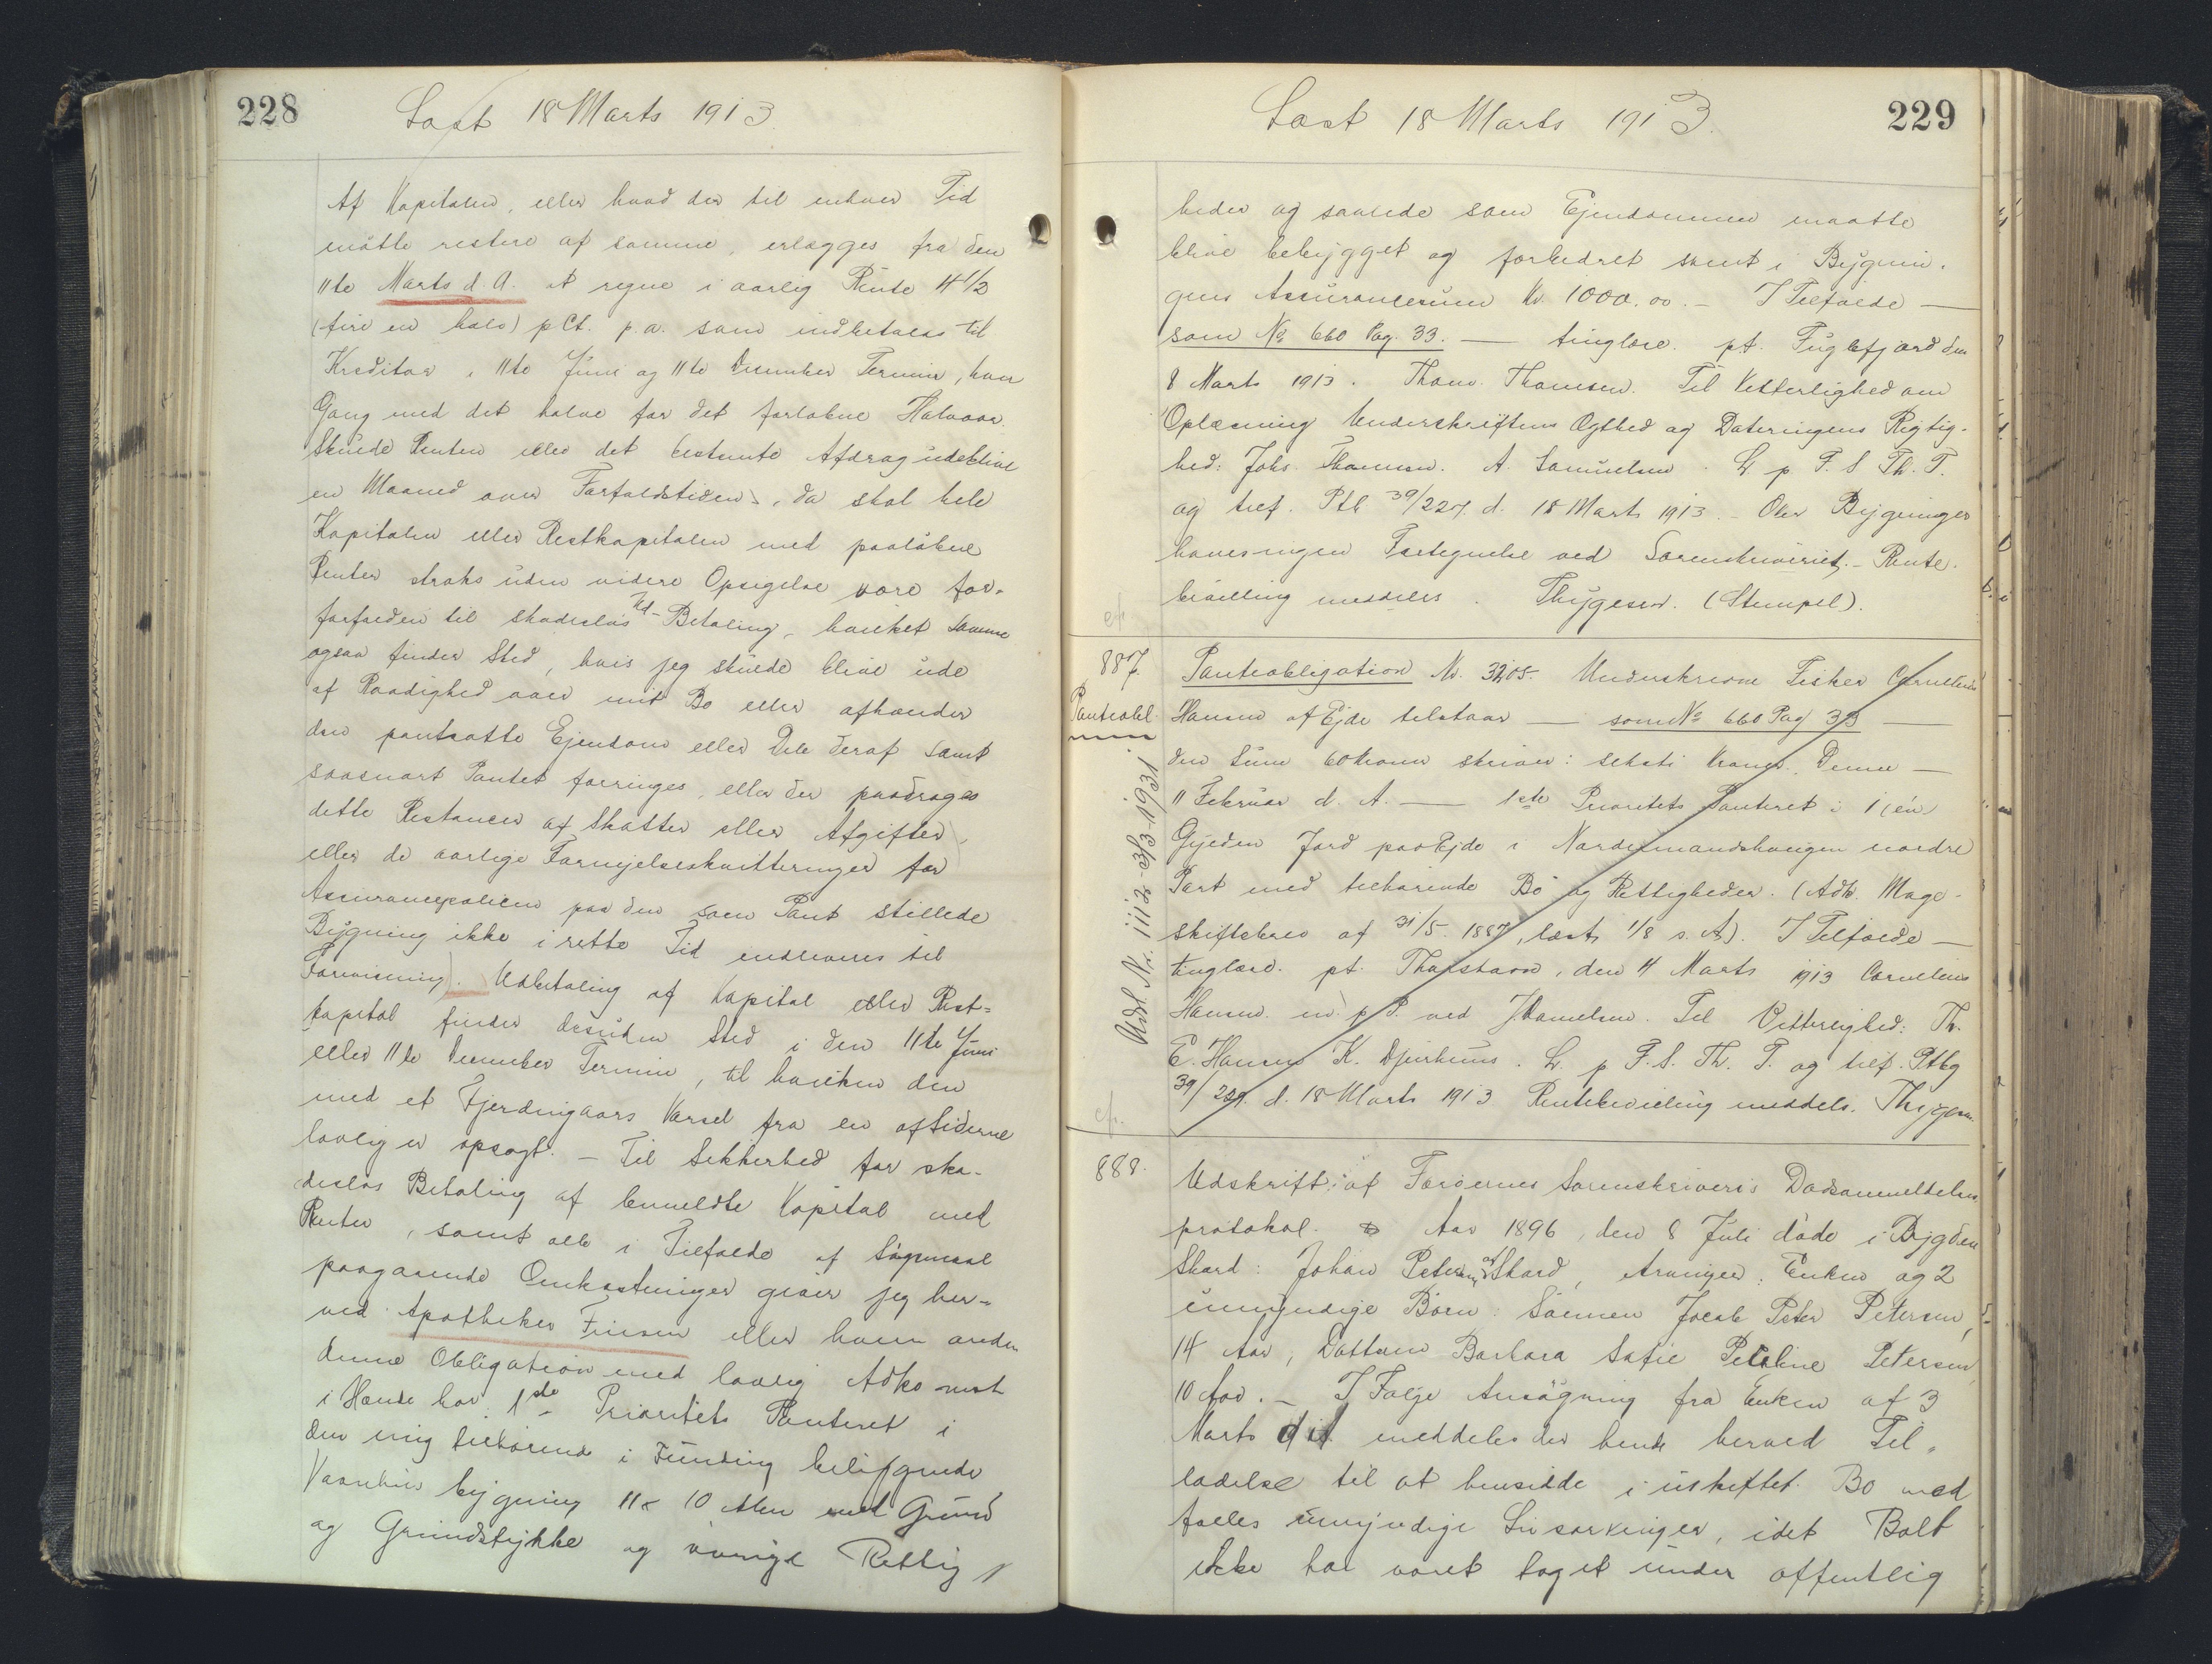 228
Læst 18 Marts 1913.
Af Kapitalen, eller hvad der til enhver Tid
måtte restere af samme, erlægges fra den
11te Marts d. A. at regne i aarlig Rente 4 1/2
(fire en halv) pCt. p.a. som indbetales til
Kreditor i 11te Juni og 11te December Termin, hver
Gang med det halve for det forløbne Halvaar.
Skulde Renten eller det bestemte Afdrag udeblive
en Maaned over Forfaldstiden, da skal hele
Kapitalen eller Restkapitalen med paaløbne
Renter straks uden videre Opsigelse være for-
forfalden til skadesløs Betaling, hvilket samme
ogsaa finder Sted, hvis jeg skulde blive ude
af Raadighed over mit Bo eller afhænder
den pantsatte Ejendom eller Dele deraf samt
saasnart Pantet forringes, eller der paadrages
dette Restancer af Skatter eller Afgifter,
eller de aarlige Fornyelseskvitteringer for
Assurancepolicen paa den som Pant stillede
Bygning ikke i rette Tid indleveres til
Forevisning). Udbetaling af Kapital eller Rest-
kapital finder desuden Sted i den 11te Juni
eller 11te December Termin, til hvilken den
med et Fjerdingaars Varsel fra en af Siderne
lovlig er opsagt. – Til Sikkerhed for ska-
desløs Betaling af bemeldte Kapital med
Renter, samt alle i Tilfælde af Søgsmaal
paagaaende Omkostninger giver jeg her-
ved Apotheker Finsen eller hvem anden
denne Obligation med lovlig Adkomst
i Hænde har 1ste Prioritets Panteret i
den mig tilhørende i Funding beliggende
Vaanhus bygning 11 x 10 Alen med Grund
og Grundstykke og øvrige Rettig
229
Læst 18 Marts 1913.
heder og saavide som Ejendommen maatte
blive bebygget og forbedret samt i Bygnin-
gens Assurancesum Kr. 1000.00. – I Tilfælde –
som No 660 Pag. 33. – tinglæse. pt. Fuglefjord den
8 Marts 1913. Thom. Thomsen. Til Vitterlighed om
Oplæsning Underskriftens Ægthed og Dateringens Rigtig-
hed: Johs. Thomsen. A. Samuelsen. L. p. F. S. Th. T.
og tilf. Ptb 39/227. d. 18 Marts 1913. – Over Bygninger
haves ingen Fortegnelse ved Sorenskriveriet. – Rente-
bevilling meddeles. Thygesen. (Stempel).
cf.
887.
Panteobl.
Udsl. Nr. 112 - 3/3 - 1931.
Panteobligation Nr. 3205. Underskrevne Fisker Cornelius
Hansen af Ejde tilstaar – som No 660 Pag 33 –
den Sum 60 Kroner skriver: seksti Kroner. Denne –
11 Februar d. A. – 1ste Prioritets Panteret i 1 (én)
Gylden Jord paa Ejde i Nordenmandshaugen nordre
Part med tilhørende Bø og Rettigheder. (Adk. Mage-
skiftebrev af 31/5. 1887, læst 1/8 s. A). I Tilfælde –
tinglæse. pt. Thorshavn, den 4 Marts 1913 Cornelius
Hansen. m. p. P. ved J. Danielsen. Til Vitterlighed: Th.
E. Hansen K. Djurhuus. L. p. F. S. Th. T. og tilf. Ptbg
39/229. d. 18 Marts 1913 Rentebevilling meddels. Thygesen.
cf.
888.
Udskrift af Færøernes Sorenskriveris Dødsanmeldelses
protokol. Aar 1896, den 8 Juli døde i Bygden
Skard: Johan Petersen af Skard, Arvinger: Enken og 2
umyndige Børn: Sønnen Jacob Peter Petersen,
14 Aar, Datteren Barbara Sofie Petrine Petersen
10 Aar. – I Følge Ansøgning fra Enken af 3
Marts d.A. meddeles der hende herved Til-
ladelse til at hensidde i uskiftet Bo med
fælles umyndige Livsarvinger, idet Boet
ikke har været taget under offentlig